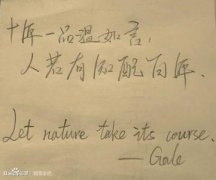 十年一品温如言，
人若有知配百年.
Let nature take its course.
—Gale